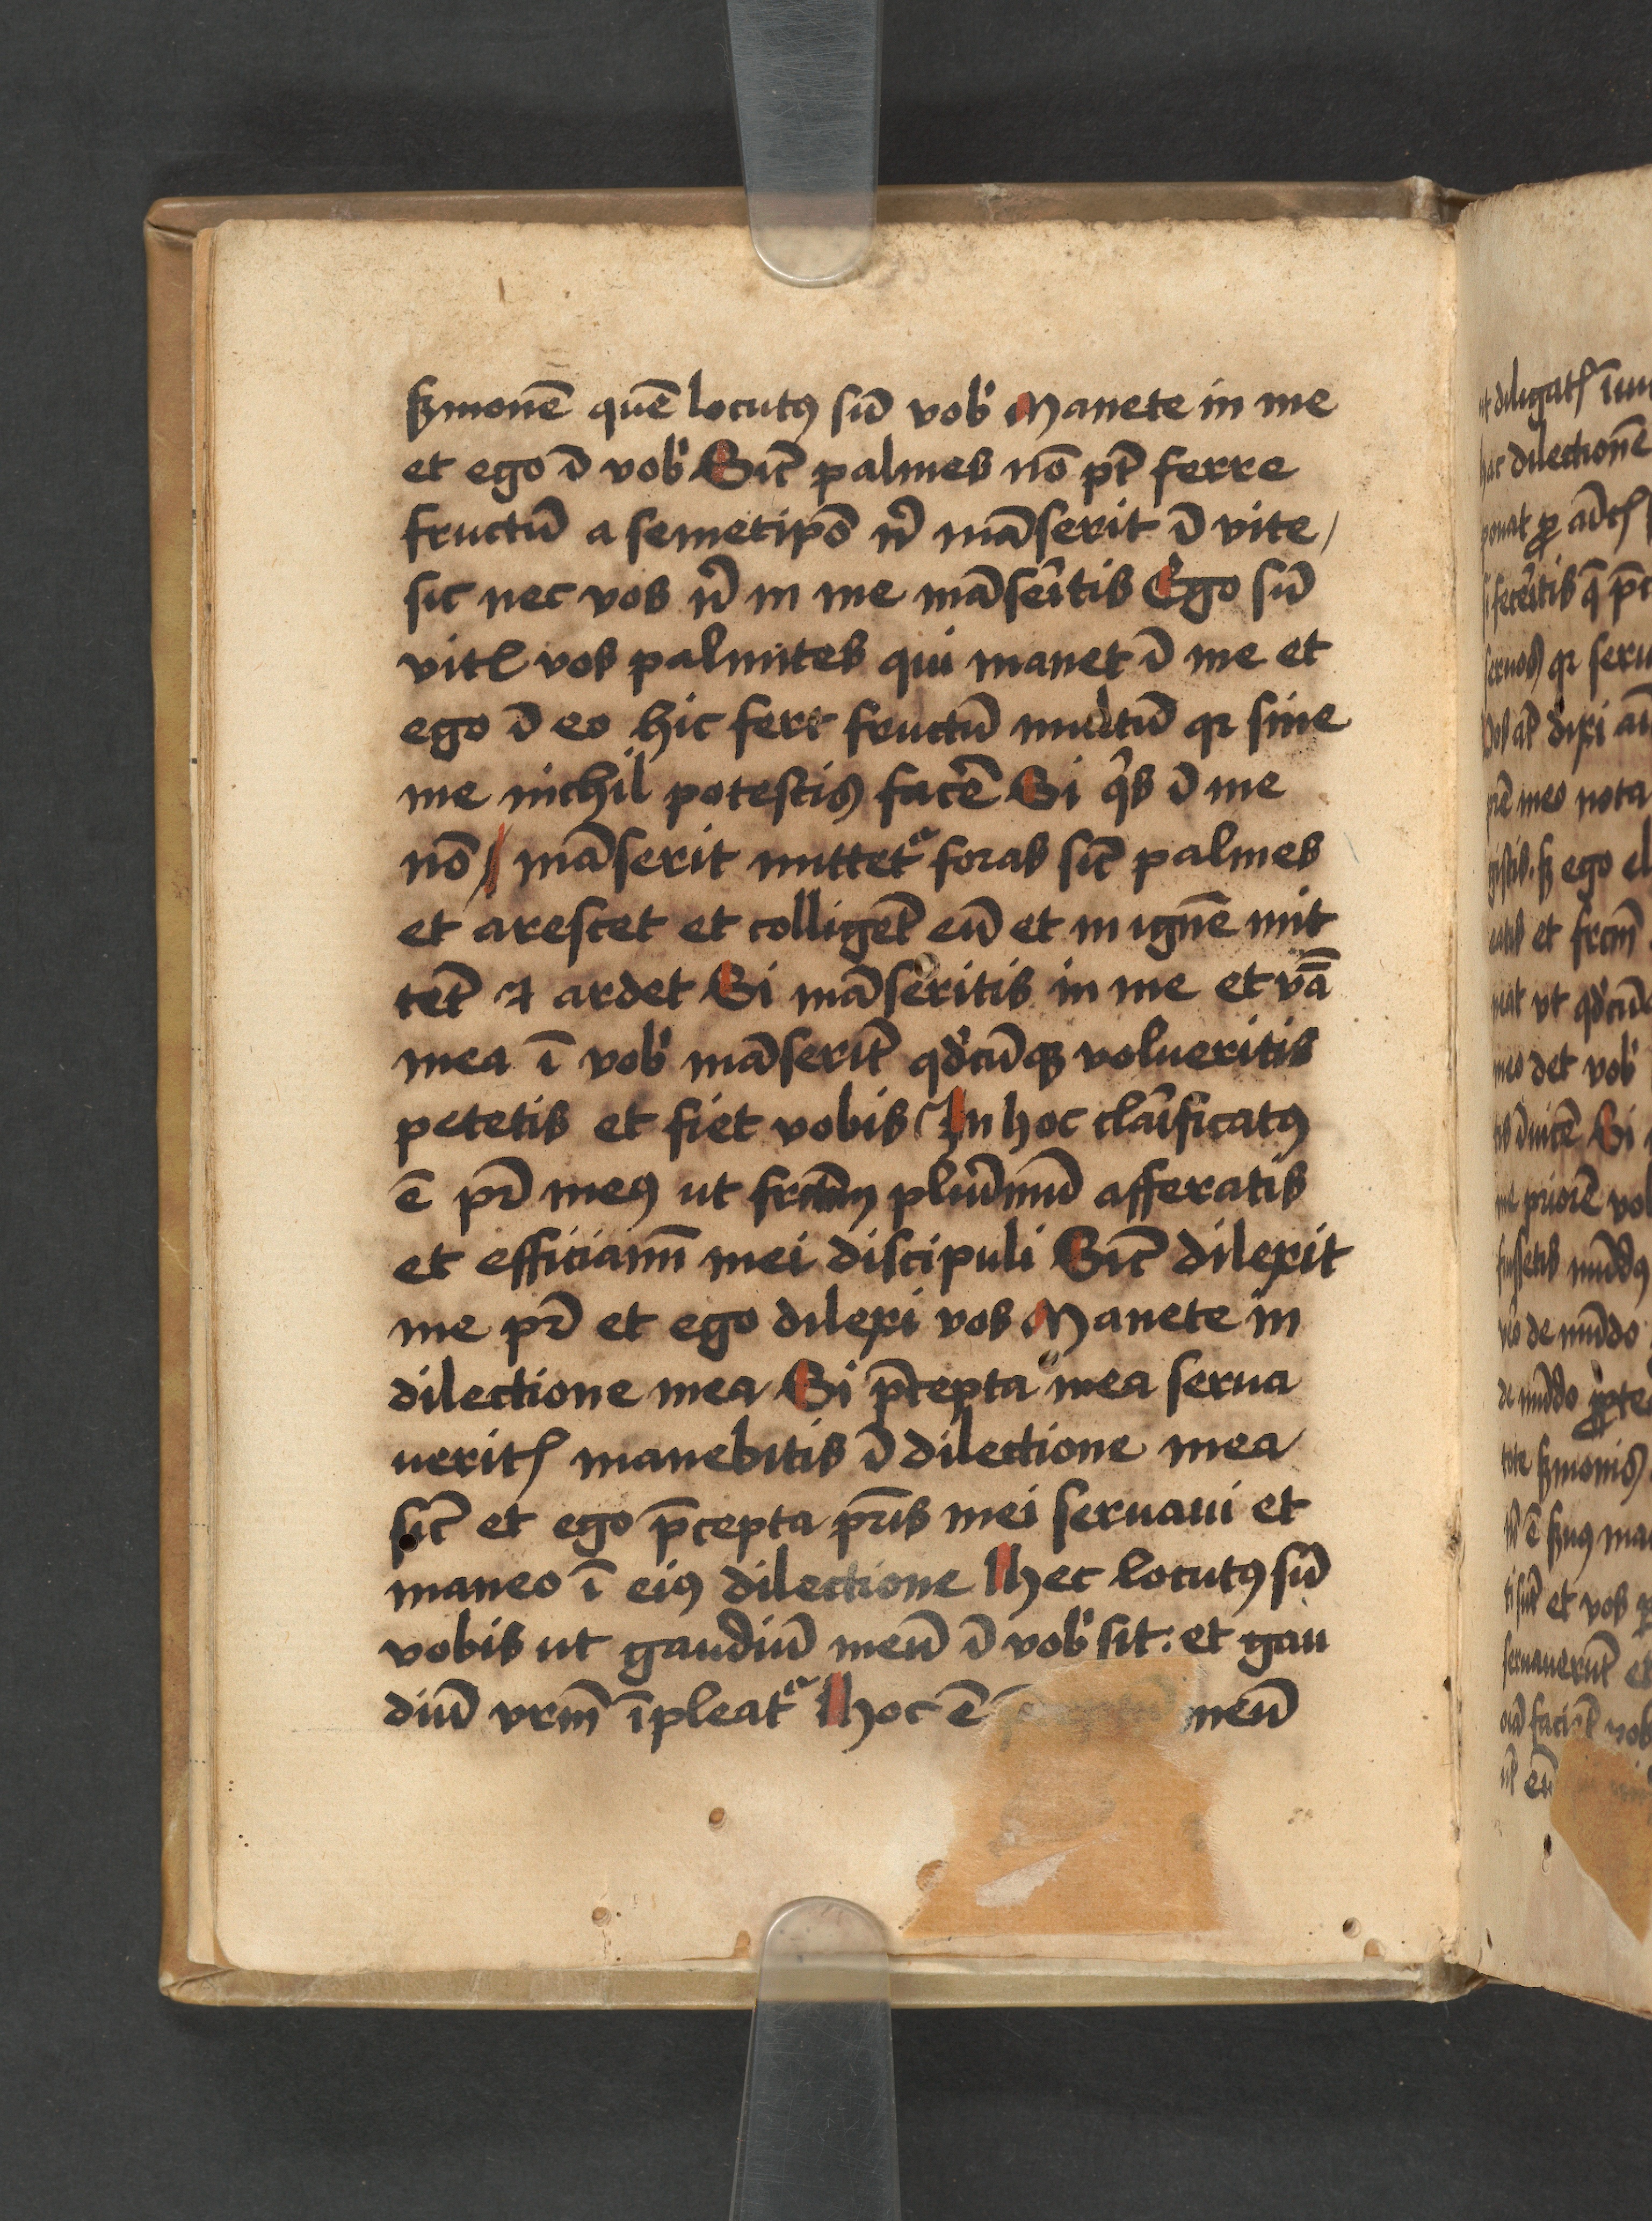 sꝫmonē quē locutꝯ sū vob̾ Manete in me
et ego ī vob̾ Sic̄ palmes nō pt̄ ferre
fructū a semetipō n̄ māserit ī vite /
sic nec vos n̄ in me māseītis Ego sū
vitꝭ vos palmites qui manet ī me et
ego ī eo hic fert fructū multū qꝛ sine
me nichil potestis facē Si qͥs ī me
nō māserit mittet᷑ foras sic̄ palmes
et arescet et colliget̄ eū et in ignē mit
tet̄ ⁊ ardet Si māseritis in me et v̄ā
mea ī vob̾ māserit̄ qd̾cūqꝫ volueritis
petetis et fiet vobis In hoc claīficatꝯ
ē pr̄ meꝯ ut frctm̄ pluīmū afferatis
et efficiam̄ mei discipuli Sic̄ dilexit
me pr̄ et ego dilexi vos Manete in
dilectione mea Si p̄cepta mea serua
ueritꝭ manebitis ī dilectione mea
sic̄ et ego p̄cepta pr̄is mei seruaui et
maneo ī eiꝯ dilectione Hec locutꝯ sū
vobis ut gaudiū meū ī vob̾ sit : et gau
diū vrm̄ īpleat᷑ Hoc ē meū
ut diligatꝭ
hac dilectionē
ponat ꝓ
feceītis q̄
seruos qꝛ seru
dixi
meo nota
ego el
et frctm̄
ut qd̾cūq
meo det vob̾
Si
priorē vo
mūdꝯ
de mūdo
de mūdo ꝓpte
sꝫmonis
et vos
seruauerūt et
eū